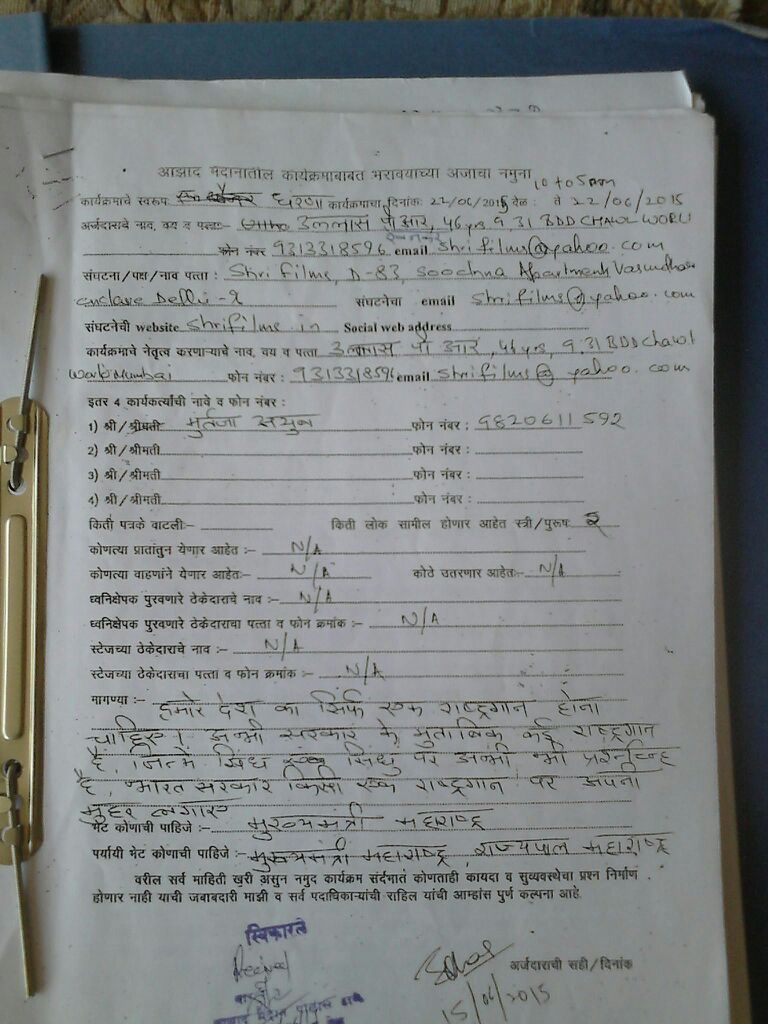 आझाद मैदानातील कार्यक्रमाबाबत भरावयाच्या अर्जाचा नमुना
10 to 05 pm
कार्यक्रमाचे स्वरूप धरणा कार्यक्रमाचा दिनांक: 22/06/2015 वेळ : ते 22/06/2015
अर्जदाराचे नाव, वय व पत्ता:- उल्लास पी आर, 46 yrs 9.31 BDD CHAWL WORLI
फोन नंबर 9313318596 email shrifilms@yahoo.com
संघटना/पक्ष/नाव पत्ता : Shri Films, D-83, Soochna Apartment Vasundhara
Enclave Delhi - संघटनेचा email shrifilms@yahoo.com
संघटनेची website shrifilms.in Social web address
कार्यक्रमाचे नेतृत्व करणाऱ्याचे नाव, वय व पत्ता उल्लास पी आर, 46 yrs, 9.31 BDD Chawl
Worli Mumbai फोन नंबर : 9313318596 email shrifilms@yahoo.com
इतर 4 कार्यकर्त्यांची नावे व फोन नंबर :
1) श्री/श्रीमती मुर्तजा फोन नंबर : 9820611592
2) श्री/श्रीमती फोन नंबर :
3) श्री/श्रीमती फोन नंबर :
4) श्री/श्रीमती फोन नंबर :
किती पत्रके वाटली:- किती लोक सामील होणार आहेत स्त्री/पुरूष २
कोणत्या प्रातांतुन येणार आहेत :- N/A
कोणत्या वाहणांने येणार आहेत:- N/A कोठे उतरणार आहेत:- N/A
ध्वनिक्षेपक पुरवणारे ठेकेदाराचे नाव :- N/A
ध्वनिक्षेपक पुरवणारे ठेकेदाराचा पत्ता व फोन क्रमांक :- N/A
स्टेजच्या ठेकेदाराचे नाव :- N/A
स्टेजच्या ठेकेदाराचा पत्ता व फोन क्रमांक :- N/A
मागण्या :- हमारे देश का सिर्फ एक राष्ट्रगान होना
चाहिए। अभी सरकार के मुताबिक कई राष्ट्रगान
है, जिनमें सिंध एवं सिंधु पर अभी भी प्रश्नचिन्ह
है, भारत सरकार किसी एक राष्ट्रगान पर अपनी
मुहर लगाए
भेट कोणाची पाहिजे :- मुख्यमंत्री महाराष्ट्र
पर्यायी भेट कोणाची पाहिजे :- मुख्यमंत्री महाराष्ट्र, राज्यपाल महाराष्ट्र
वरील सर्व माहिती खरी असुन नमुद कार्यक्रम संर्दभात कोणताही कायदा व सुव्यवस्थेचा प्रश्न निर्माण
होणार नाही याची जबाबदारी माझी व सर्व पदाधिकाऱ्यांची राहिल यांची आम्हांस पुर्ण कल्पना आहे.
स्विकारले
Received
अर्जदाराची सही/दिनांक
15/06/2015